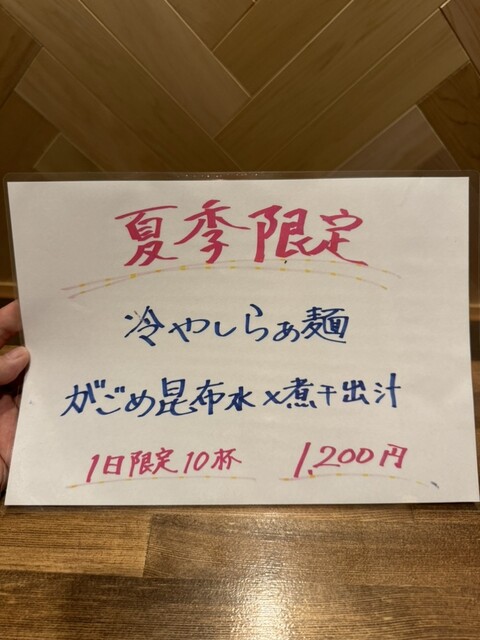 夏季限定
冷やしらぁ麺
がごめ昆布水×煮干出汁
1日限定10杯 1,200円